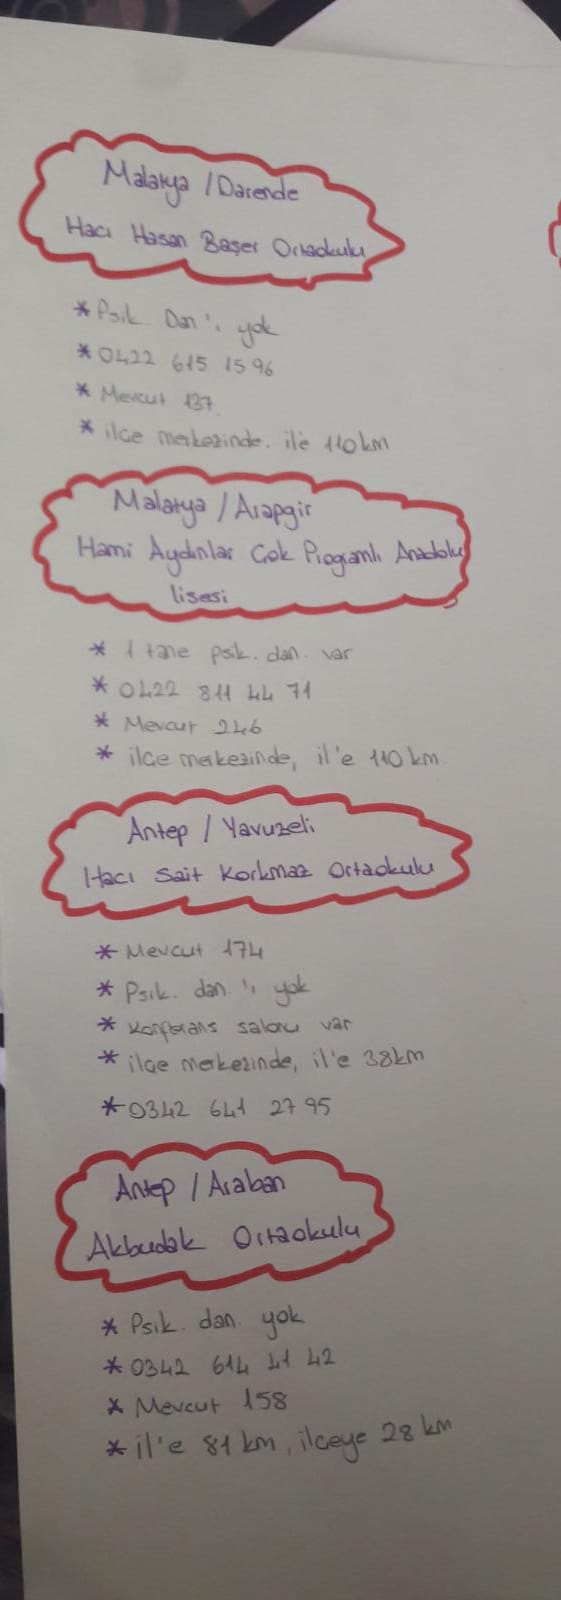 Malatya / Darende
Hacı Hasan Başer Ortaokulu
* Psik. Dan'ı yok
* 0422 615 15 96
* Mevcut 137.
* ilçe merkezinde. il'e 110 km
Malatya / Arapgir
Hami Aydınlar Çok Programlı Anadolu
lisesi
* 1 tane psik. dan. var
* 0422 811 44 71
* Mevcut 246
* ilçe merkezinde, il'e 110 km
Antep / Yavuzeli
Hacı Sait Korkmaz Ortaokulu
* Mevcut 174
* Psik. dan.'ı yok
* Konferans salonu var
* ilçe merkezinde, il'e 38 km
* 0342 641 27 95
Antep / Araban
Akbudak Ortaokulu
* Psik. dan. yok
* 0342 614 41 42
* Mevcut 158
* il'e 81 km, ilçeye 28 km